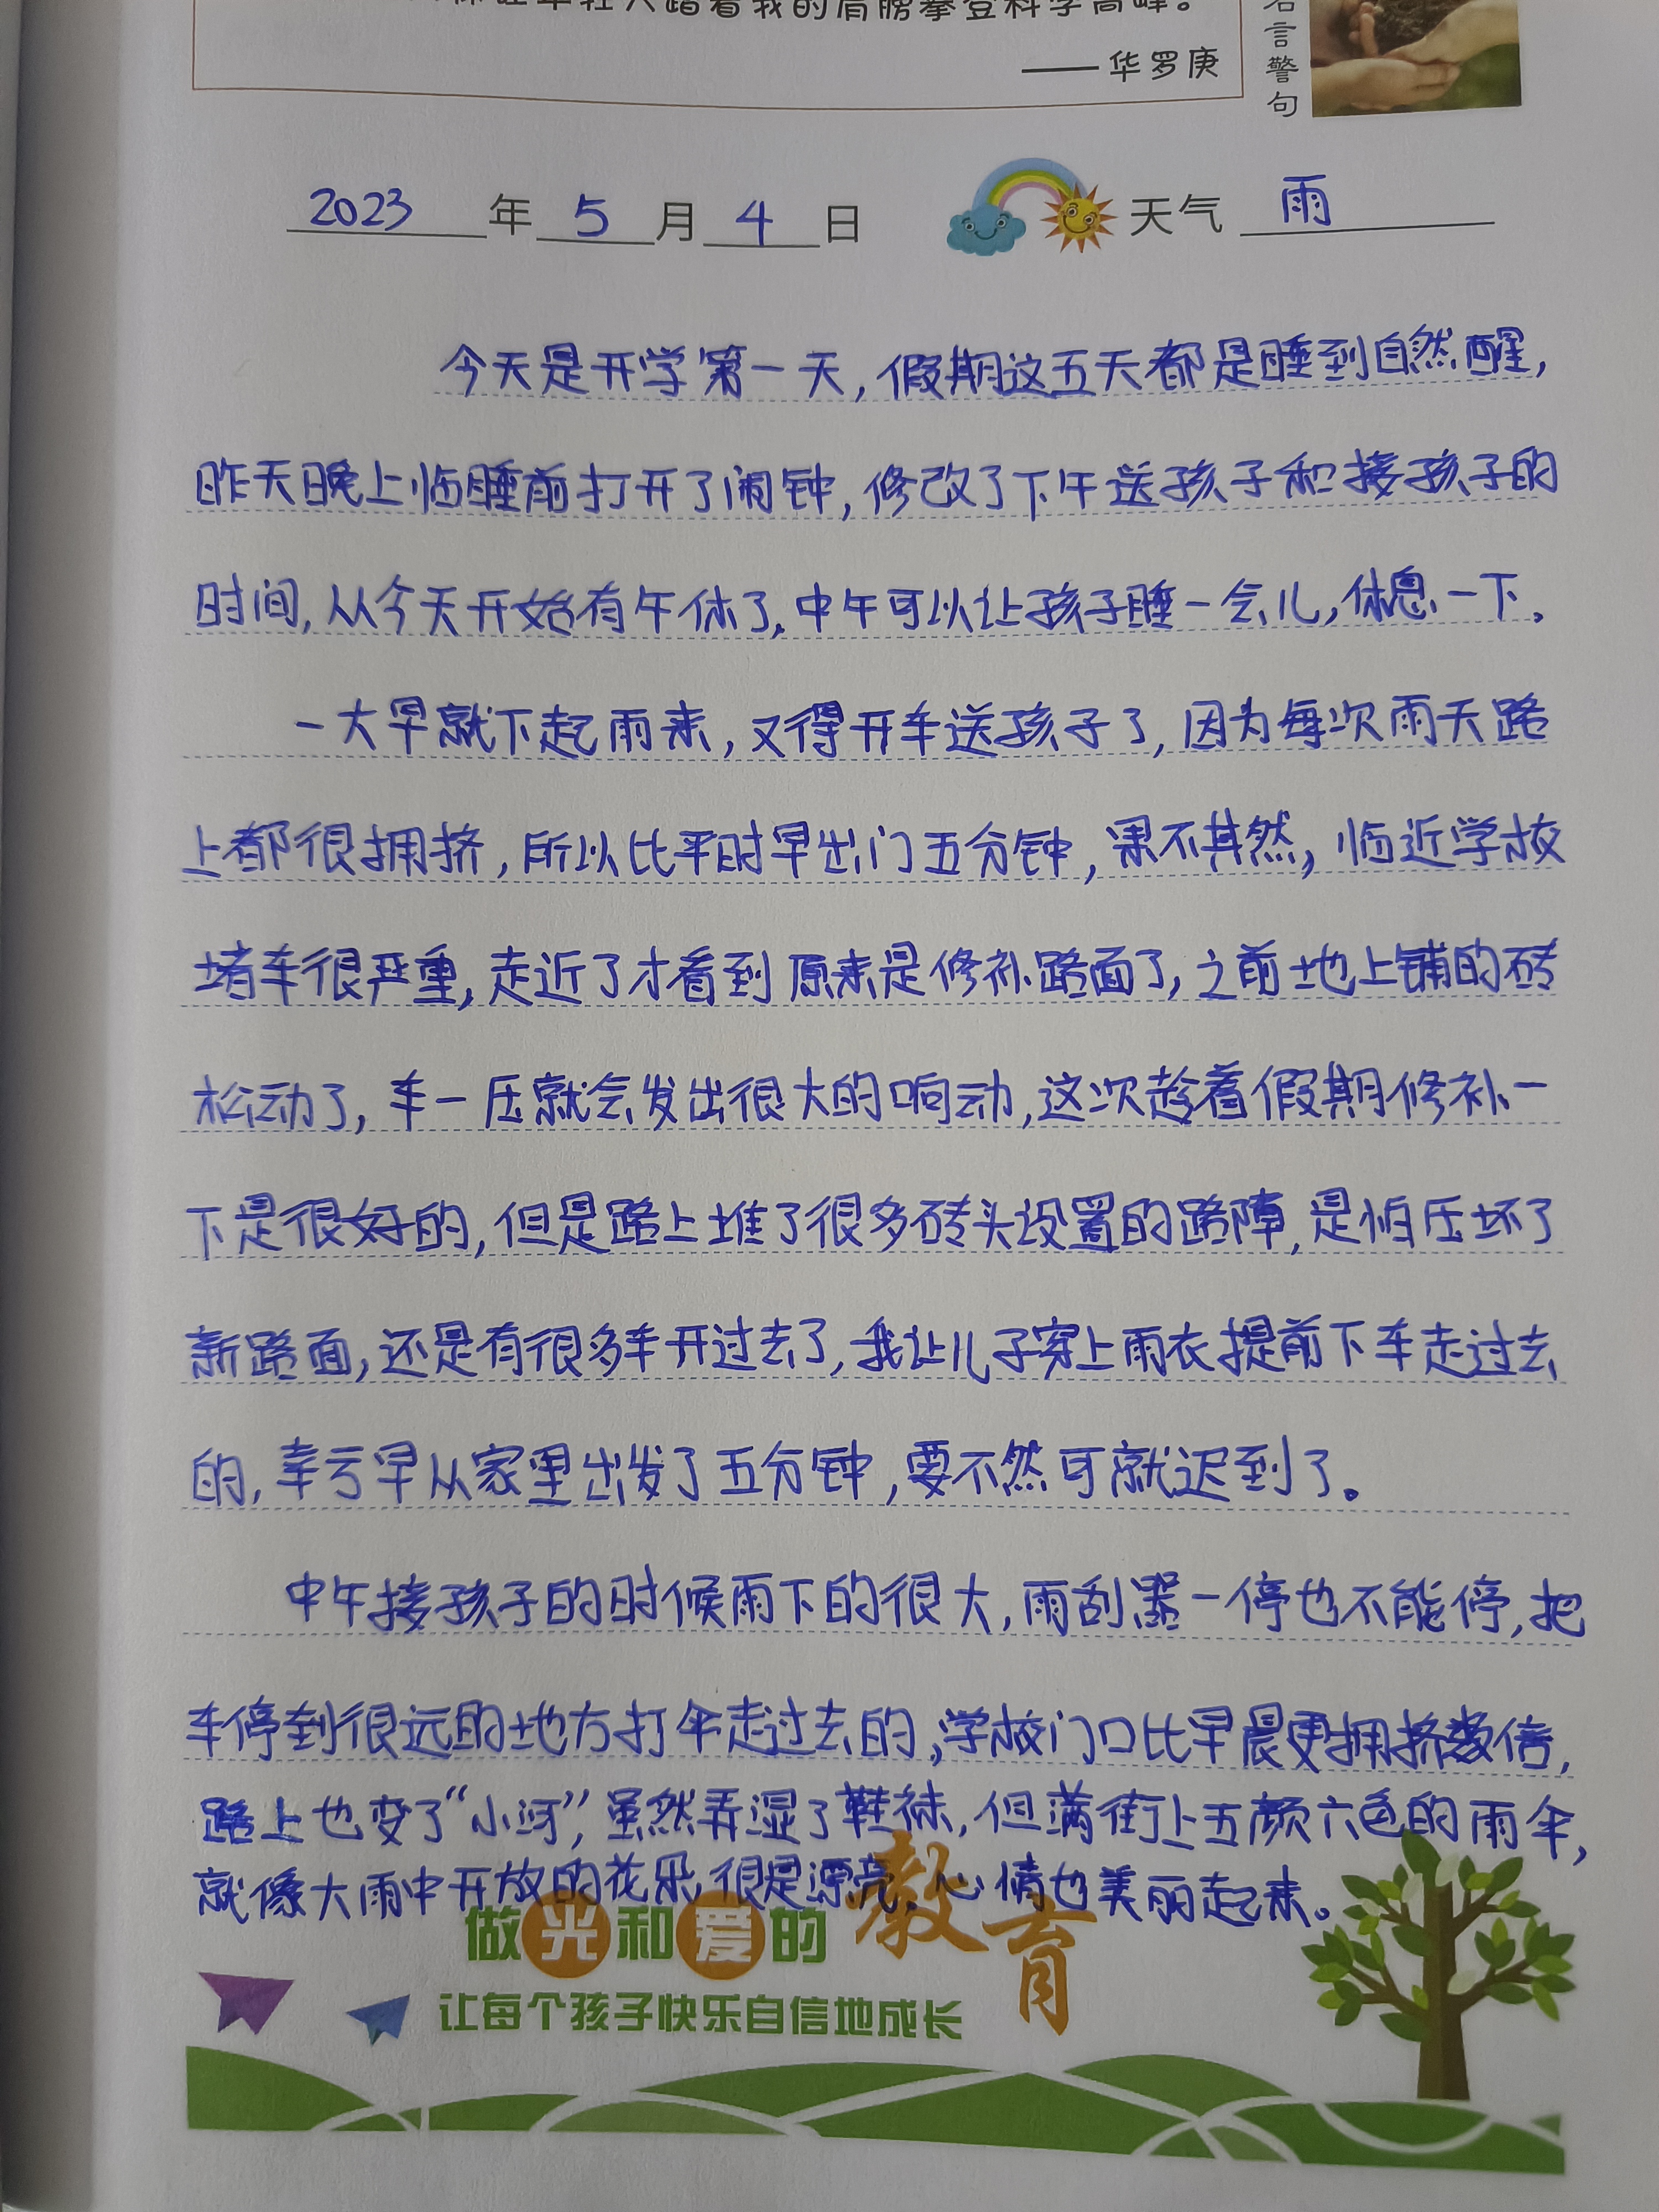 年轻人踏着我的肩膀攀登科学高峰。
——华罗庚
言警句
2023年5月4日 天气 雨
今天是开学第一天,假期这五天都是睡到自然醒,
昨天晚上临睡前打开了闹钟,修改了下午送孩子和接孩子的
时间,从今天开始有午休了,中午可以让孩子睡一会儿,休息一下。
一大早就下起雨来,又得开车送孩子了,因为每次雨天路
上都很拥挤,所以比平时早出门五分钟,果不其然,临近学校
堵车很严重,走近了才看到原来是修补路面了,之前地上铺的砖
松动了,车一压就会发出很大的响动,这次趁着假期修补一
下是很好的,但是路上堆了很多砖头设置的路障,是怕压坏了
新路面,还是有很多车开过去了,我让儿子穿上雨衣提前下车走过去
的,幸亏早从家里出发了五分钟,要不然可就迟到了。
中午接孩子的时候雨下的很大,雨刮器一停也不能停,把
车停到很远的地方打伞走过去的,学校门口比早晨更拥挤数倍,
路上也变了“小河”,虽然弄湿了鞋袜,但满街上五颜六色的雨伞,
就像大雨中开放的花朵,很是漂亮,心情也美丽起来。
做光和爱的教育
让每个孩子快乐自信地成长